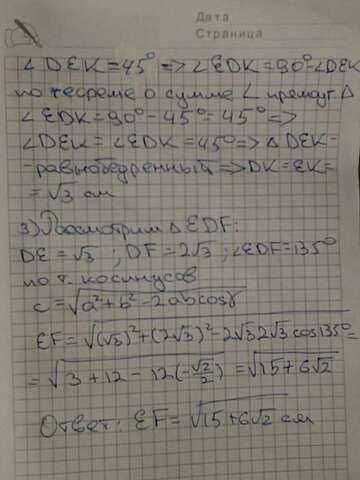 Дата
Страница
∠DEK = 45° => ∠EDK = 90° - ∠DEK
по теореме о сумме ∠ прямоуг. Δ
∠EDK = 90° - 45° = 45° =>
∠DEK = ∠EDK = 45° => Δ DEK -
- равнобедренный => DK = EK =
= √3 см
3) Рассмотрим Δ EDF:
DE = √3 ; DF = 2√3 ; ∠EDF = 135°
по т. косинусов
c = √a² + b² - 2ab cosγ
EF = √(√3)² + (2√3)² - 2√3 2√3 cos 135° =
= √3 + 12 - 12(-√2/2) = √15 + 6√2
Ответ: EF = √15 + 6√2 см